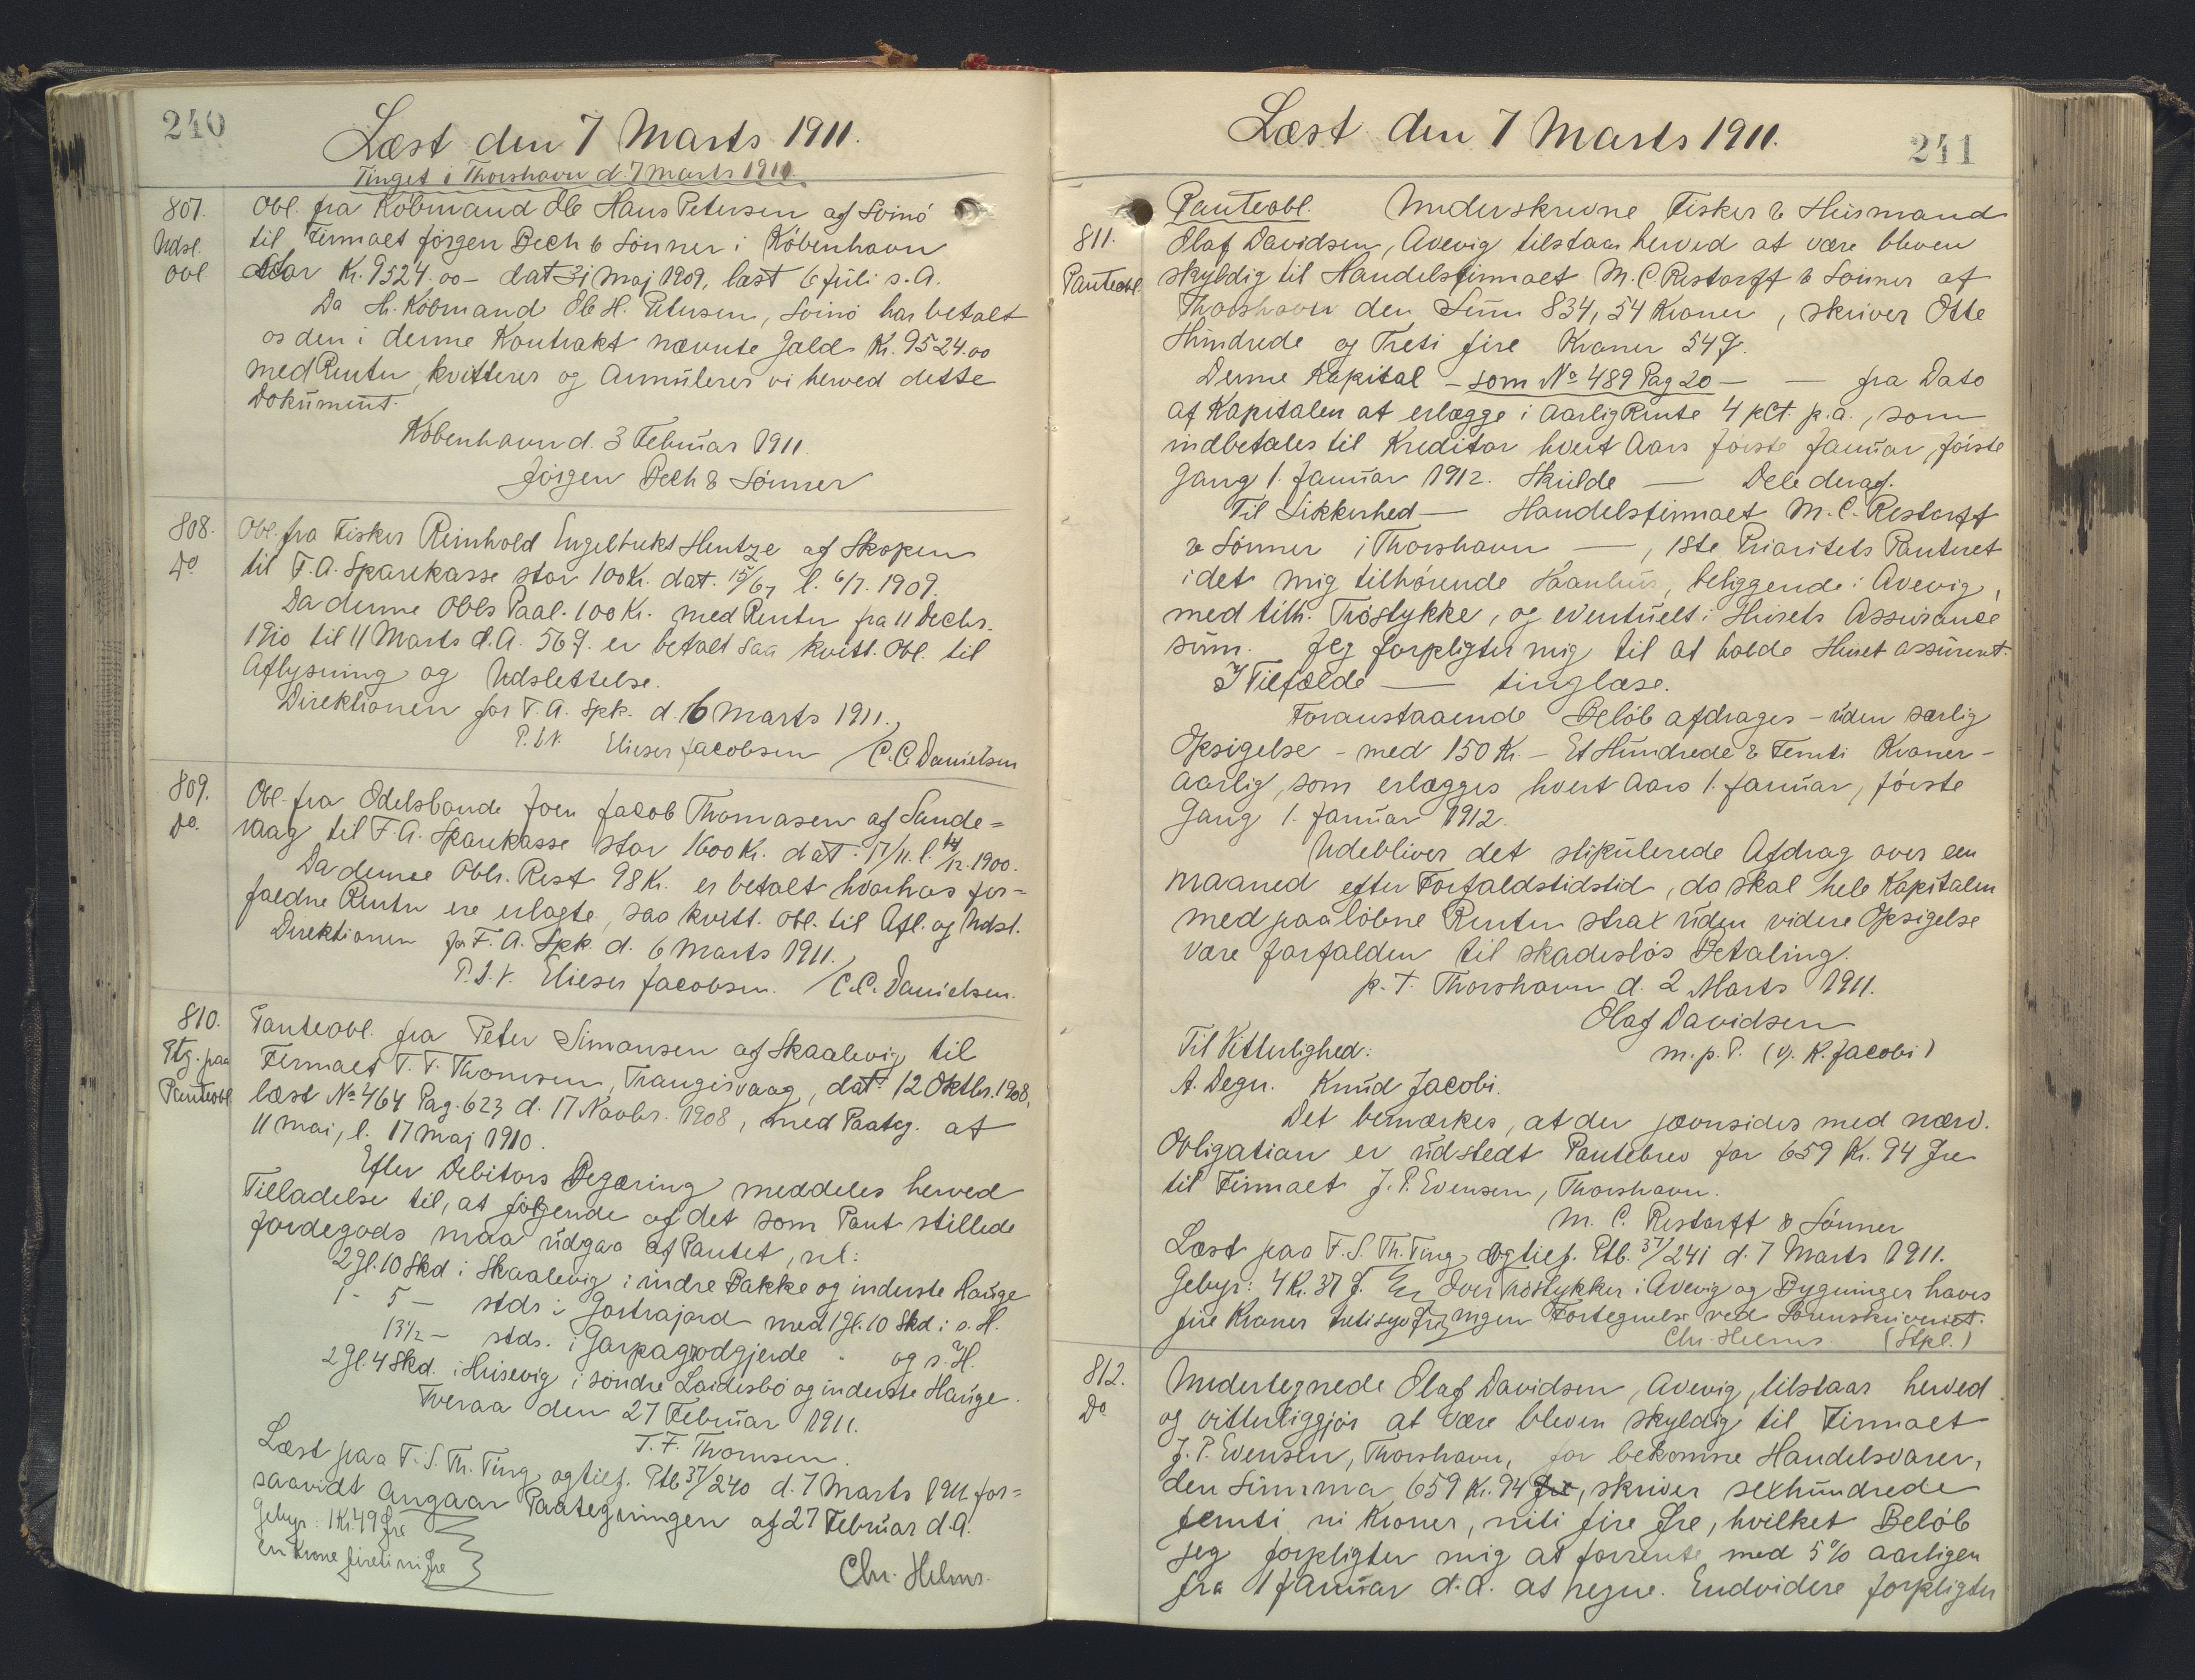 240
Læst den 7 Marts 1911.
Tinget i Thorshavn d. 7 Marts 1911.
807.
Udsl.
Obl
Obl. fra Købmand Ole Hans Petersen af Svinö
til Firmaet Jørgen Bech & Sönner i København
stor Kr. 9524.00 - dat 31 Maj 1909, læst 6 Juli s. A.
Da Hr. Købmand Ole H. Petersen, Svinö har betalt
os den i denne Kontrakt nævnte Gæld Kr. 9524.00
med Renter, kvitterer og Annulerer vi herved dette
Dokument.
København d. 3 Februar 1911.
Jörgen Bech & Sönner
808.
Do
Obl. fra Fisker Reinhold Engelbrekt Hentze af Skopen
til F. A. Sparekasse stor 100 Kr. dat. 15/6, l. 6/7. 1909.
Da denne Obls Paal. 100 Kr. med Renter fra 11 Decbr.
1910 til 11 Marts d. A. 56 Ø. er betalt saa kvitt. Obl. til
Aflysning og Udslettelse.
Direktionen for F. A. Spk. d. 6 Marts 1911.
P. S. V. Elieser Jacobsen / C. C. Danielsen
809.
Do.
Obl. fra Odelsbonde Joen Jacob Thomasen af Sande=
vaag til F. A. Sparekasse stor 1600 Kr. dat. 17/11. l. 14/12. 1900.
Da denne Obls. Rest 98 Kr. er betalt hvorhos for=
faldne Renter ere erlagte, saa kvitt. Obl. til Afl. og Udsl.
Direktionen for F. A. Spk. d. 6 Marts 1911.
P. S. V. Elieser Jacobsen. / C. C. Danielsen.
810.
Ptg. paa
Panteobl
Panteobl. fra Peter Simonsen af Skaalevig til
Firmaet T. F. Thomsen, Trangisvaag, dat. 12 Oktbr. 1908,
læst No 464 Pag. 623 d. 17 Novbr. 1908, med Paateg. af
11 mai, l. 17 Maj 1910.
Efter Debitors Begæring meddeles herved
Tilladelse til, at følgende af det som Pant stillede
Jordegods maa udgaa af Pantet, nl:
2 Gl. 10 Skd i Skaalevig i indre Bakke og inderste Hauge
1 - 5 - stds i Gartrajord med 1 Gl. 10 Skd i s. H.
13½ - stds. i Garpagrodgjerde - og s. H.
2 Gl. 4 Skd. i Husevig i söndre Loidesbö og inderste Hauge.
Tveraa den 27 Februar 1911.
T. F. Thomsen.
Læst paa F. S. Th. Ting og tilf. Ptb. 37/240 d. 7 Marts 1911. for=
saavidt angaar Paategningen af 27 Februar d. A.
Gebyr: 1 Kr. 49 Øre
En Krone firetini Øre
Chr. Helms.
Læst den 7 Marts 1911.
241
811.
Panteobl
Panteobl. Underskrevne Fisker & Husmand
Olaf Davidsen, Avevig tilstaar herved at være bleven
skyldig til Handelsfirmaet M. C. Restorff & Sönner af
Thorshavn den Sum 834,54 Kroner, skriver Otte
Hundrede og Treti fire Kroner 54 Ø.
Denne Kapital - som No 489 Pag 20 - — fra Dato
af Kapitalen at erlægge i aarlig Rente 4 pCt. p. a., som
indbetales til Kreditor hvert Aars förste Januar, förste
Gang 1. Januar 1912. Skulde — Dele deraf.
Til Sikkerhed — Handelsfirmaet M. C. Restorff
& Sönner i Thorshavn —, 1ste Prioritets Panteret
i det mig tilhörende Vaanhus, beliggende i Avevig,
med tilh. Tröstykke, og eventuelt i Husets Assurance
sum. Jeg forpligter mig til at holde Huset assureret.
I Tilfælde — tinglæse.
Foranstaaende Belöb afdrages - uden særlig
Opsigelse - med 150 Kr. - Et Hundrede & Femti Kroner -
aarlig, som erlægges hvert Aars 1. Januar, förste
Gang 1. Januar 1912.
Udebliver det stipulerede Afdrag over een
Maaned efter Forfaldstidstid, da skal hele Kapitalen
med paalöbne Renter strax uden videre Opsigelse
være forfalden til skadeslös Betaling.
p. T. Thorshavn d. 2 Marts 1911.
Olaf Davidsen
m. p. P. (v. K. Jacobi)
Til Vitterlighed:
A. Degn. Knud Jacobi.
Det bemærkes, at der jævnsides med nærv.
Obligation er udstedt Pantebrev for 659 Kr. 94 Øre
til Firmaet J. P. Evensen, Thorshavn.
M. C. Restorff & Sönner
Læst paa F. S. Th. Ting og tilf. Ptb. 37/241 d. 7 Marts 1911.
Gebyr: 4 Kr. 37 Ø. Over Tröstykker i Avevig og Bygninger haves
fire Kroner tretisyv Øre ingen Fortegnelse ved Sorenskriveriet.
Chr. Helms. (Stpl.)
812.
Do
Undertegnede Olaf Davidsen, Avevig, tilstaar herved
og vitterliggjör at være bleven skyldig til Firmaet
J. P. Evensen, Thorshavn, for bekomne Handelsvarer,
den Summa 659 Kr. 94 Øre, skriver sexhundrede
femti ni Kroner, niti fire Øre, hvilket Belöb
jeg forpligter mig at forrente med 5% aarligen
fra 1 Januar d. A. at regne. Endvidere forpligter